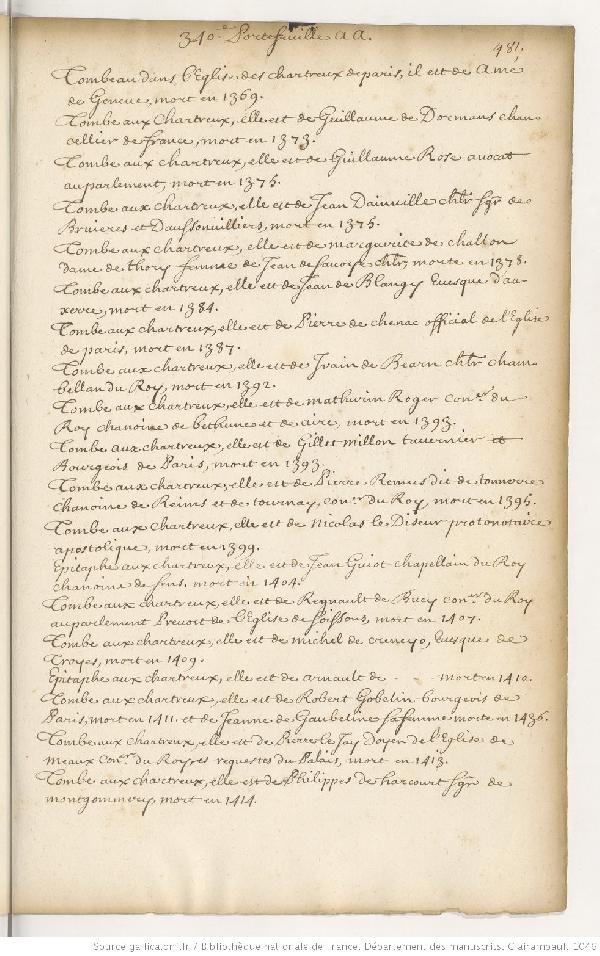 340.e Portefeuille AA.
481.
Tombeau dans l'Eglise des chartreux de paris, il est de Amé
de Geneve, mort en 1369.
Tombe aux Chartreux, elle est de Guillaume de Dormans chan
cellier de france, mort en 1373.
Tombe aux chartreux, elle est de Guillaume Rose avocat
au parlement, mort en 1375.
Tombe aux chartreux, elle est de Jean Dainville chlr sgr de
Bruieres et Daussonvilliers, mort en 1375.
Tombe aux chartreux, elle est de marguerite de challon
dame de thory femme de Jean de savoye chlr, morte en 1378.
Tombe aux chartreux, elle est de Jean de Blangy Evesque d'au
xerre, mort en 1384.
Tombe aux chartreux, elle est de Pierre de chenac official de l'Eglise
de paris, mort en 1387.
Tombe aux chartreux, elle est de Ivain de Bearn chlr cham
bellan du Roy, mort en 1392.
Tombe aux chartreux, elle est de mathurin Roger conr. du
Roy chanoine de bethune et de aire, mort en 1393.
Tombe aux chartreux, elle est de Gillet millon tavernier et
Bourgeois de Paris, mort en 1393.
Tombe aux chartreux, elle est de Pierre Remus dit de tonnerre
chanoine de Reims et de tournay, conr. du Roy, mort en 1395.
Tombe aux chartreux, elle est de Nicolas le Diseur protonotaire
apostolique, mort en 1399.
Epitaphe aux chartreux, elle est de Jean Guiot chapellain du Roy
chanoine de sens, mort en 1404.
Tombe aux chartreux, elle est de Regnault de Bucy conr. du Roy
au parlement Prevost de l'Eglise de soissons, mort en 1407.
Tombe aux chartreux, elle est de michel de Evesque de
Troyes, mort en 1409.
Epitaphe aux chartreux, elle est de arnault de . . mort en 1410.
Tombe aux chartreux, elle est de Robert Gobelin bourgeois de
Paris, mort en 1411. et de Jeanne de Gaubeline sa femme morte en 1436.
Tombe aux chartreux, elle est de Pierre le Jay Doyen de l'Eglise de
meaux conr. du Roy es requestes du Palais, mort en 1413.
Tombe aux chartreux, elle est de Philippes de harcourt sgr de
montgommery, mort en 1414.
Source gallica.bnf.fr / Bibliothèque nationale de France. Département des manuscrits. Clairambault 1046